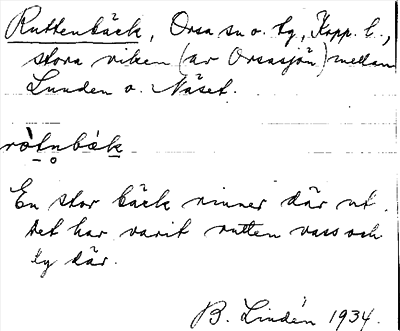 Ruttenbäck, Orsa sn o. tg, Kopp. l.,
stora viken (av Orsasjön) mellan
Lunden o. Näset.
rò̀tn̥bäk
En stor bäck rinner där ut.
Det har varit rutten vass och
ly där.
B. Lindén 1934.